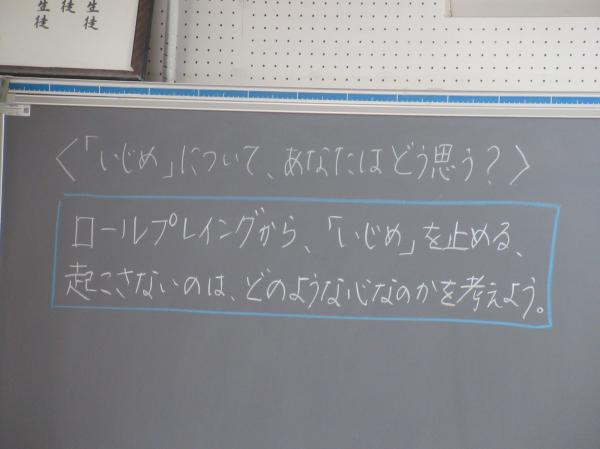 生徒
徒
生徒
〈「いじめ」について、あなたはどう思う？〉
ロールプレイングから、「いじめ」を止める、
起こさないのは、どのような心なのかを考えよう。